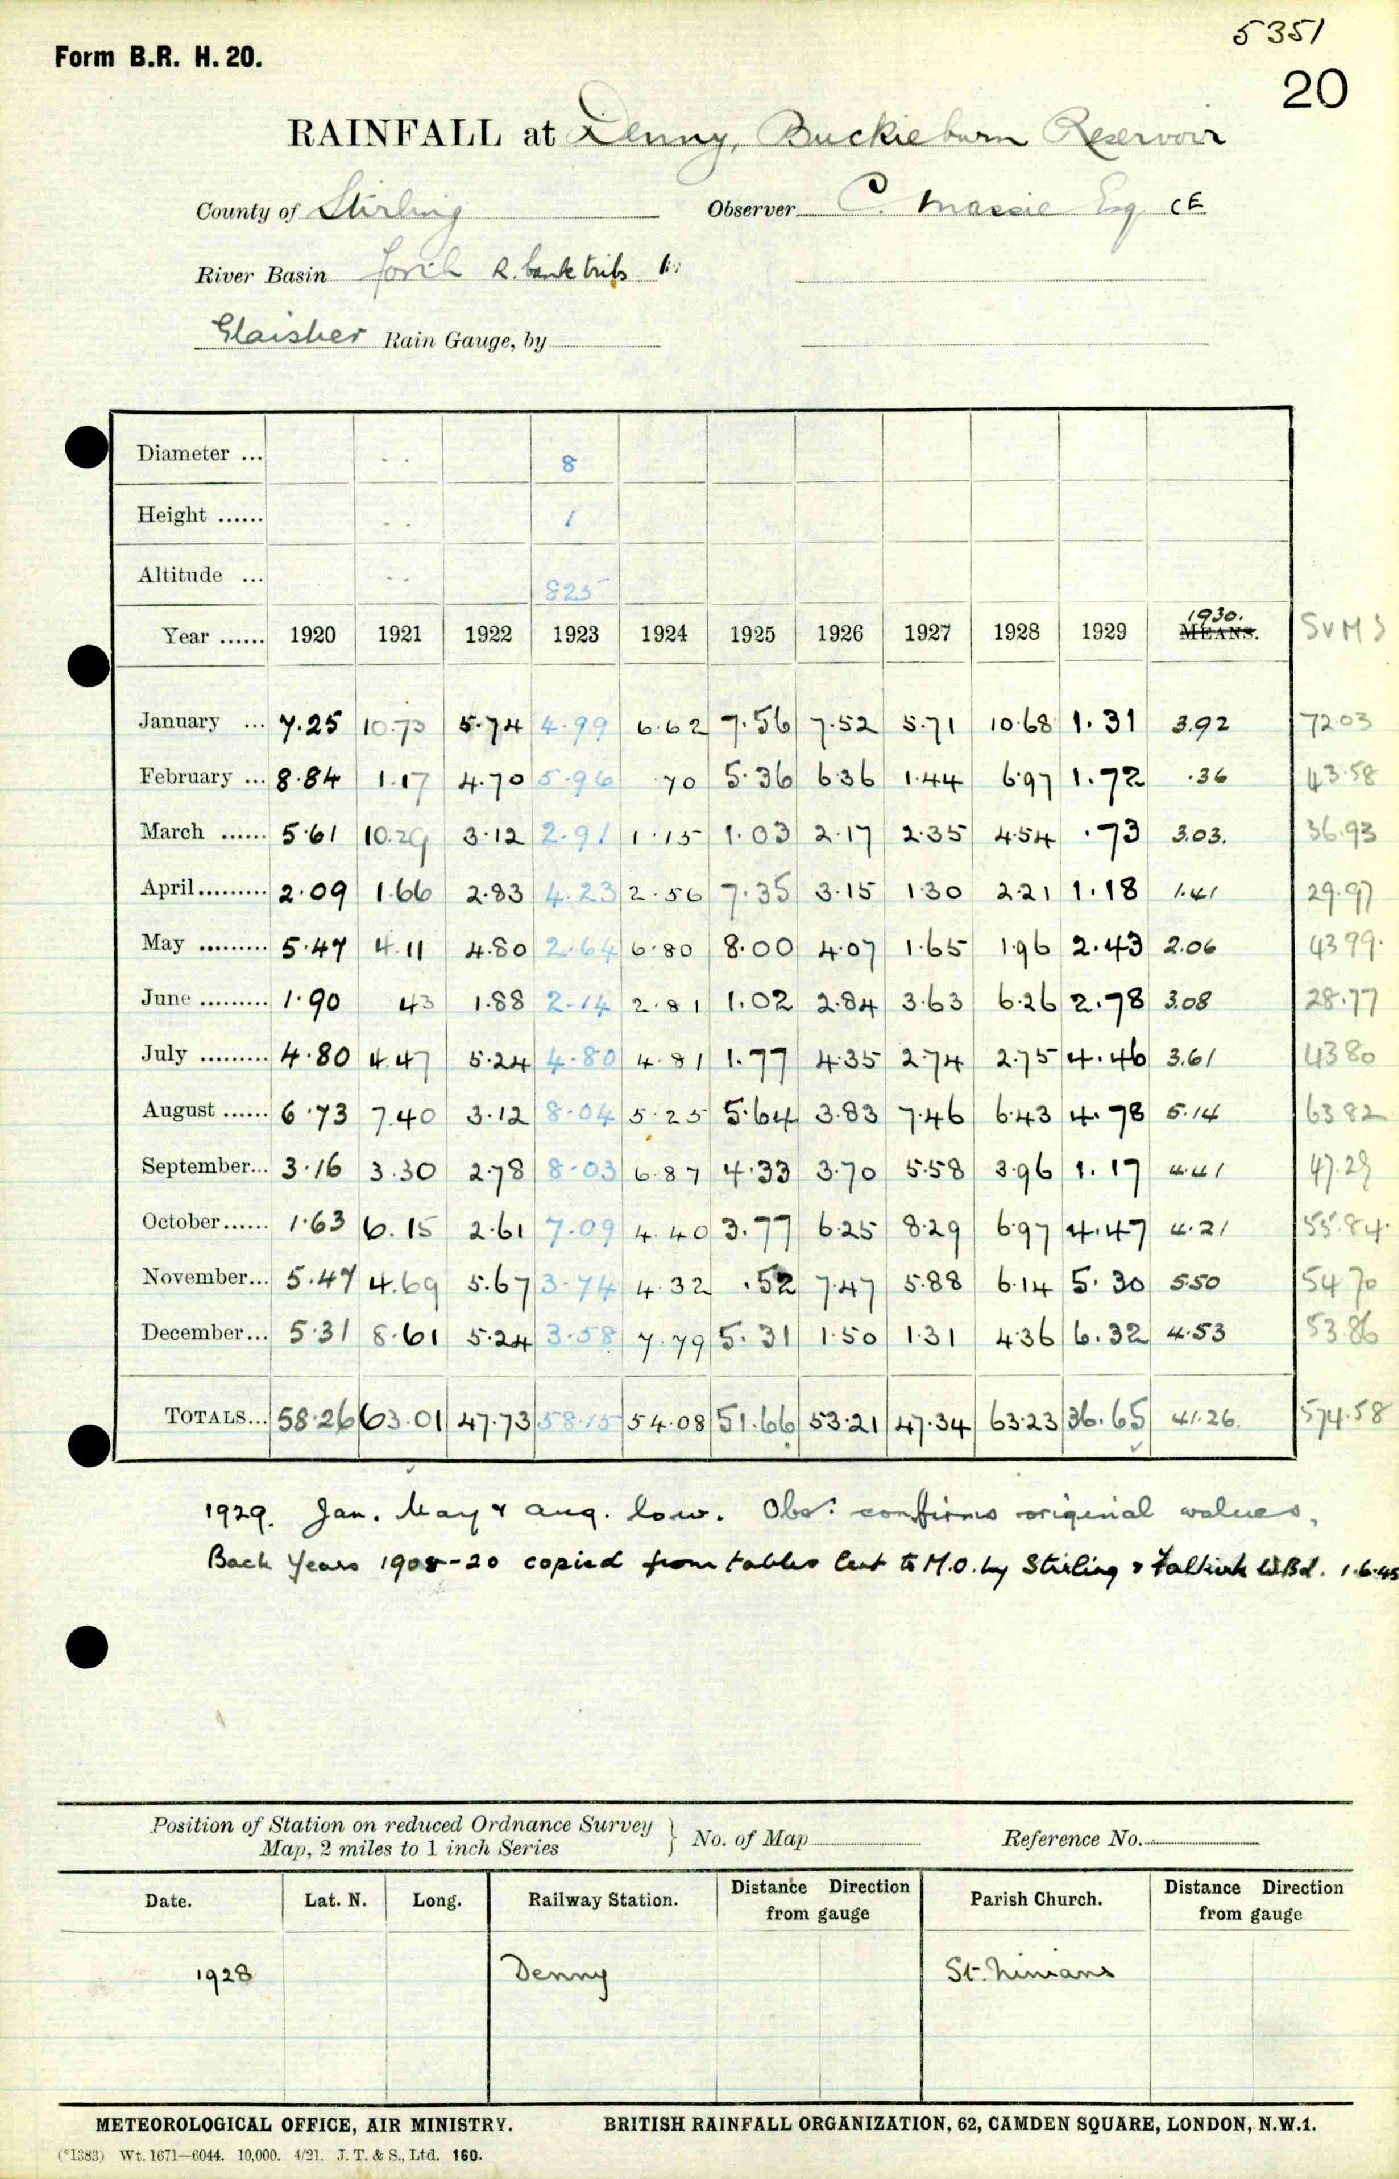 5351
Form B.R. H. 20.
20
RAINFALL at Denny, Buckieburn Reservoir
County of Stirling Observer C. Massie Esq CE
River Basin Forth R. bank tribs
Glaisher Rain Gauge, by
Diameter ... 8
Height ...... 1
Altitude ... 825
Year ...... 1920 1921 1922 1923 1924 1925 1926 1927 1928 1929 1930. MEANS. SUMS
January ... 7.25 10.73 5.74 4.99 6.62 7.56 7.52 5.71 10.68 1.31 3.92 72.03
February ... 8.84 1.17 4.70 5.96 .70 5.36 6.36 1.44 6.97 1.72 .36 43.58
March ...... 5.61 10.29 3.12 2.91 1.15 1.03 2.17 2.35 4.54 .73 3.03. 36.93
April ......... 2.09 1.66 2.83 4.23 2.56 7.35 3.15 1.30 2.21 1.18 1.41 29.97
May ......... 5.47 4.11 4.80 2.64 6.80 8.00 4.07 1.65 1.96 2.43 2.06 43.99.
June ......... 1.90 43 1.88 2.14 2.81 1.02 2.84 3.63 6.26 2.78 3.08 28.77
July ......... 4.80 4.47 5.24 4.80 4.81 1.77 4.35 2.74 2.75 4.46 3.61 43.80
August ...... 6.73 7.40 3.12 8.04 5.25 5.64 3.83 7.46 6.43 4.78 5.14 63.82
September... 3.16 3.30 2.78 8.03 6.87 4.33 3.70 5.58 3.96 1.17 4.41 47.29
October...... 1.63 6.15 2.61 7.09 4.40 3.77 6.25 8.29 6.97 4.47 4.21 55.84.
November... 5.47 4.69 5.67 3.74 4.32 .52 7.47 5.88 6.14 5.30 5.50 54.70
December... 5.31 8.61 5.24 3.58 7.79 5.31 1.50 1.31 4.36 6.32 4.53 53.86
TOTALS... 58.26 63.01 47.73 58.15 54.08 51.66 53.21 47.34 63.23 36.65 41.26. 574.58
1929. Jan. May & Aug. low. Obsr. confirms original values.
Back Years 1908-20 copied from tables lent to M.O. by Stirling & Falkirk W.Bd. 1.6.45
Position of Station on reduced Ordnance Survey
Map, 2 miles to 1 inch Series } No. of Map Reference No.
Date. Lat. N. Long. Railway Station. Distance Direction from gauge Parish Church. Distance Direction from gauge
1928 Denny St. Ninians
METEOROLOGICAL OFFICE, AIR MINISTRY. BRITISH RAINFALL ORGANIZATION, 62, CAMDEN SQUARE, LONDON, N.W.1.
(*1383) Wt. 1671—6044. 10,000. 4/21. J. T. & S., Ltd. 160.